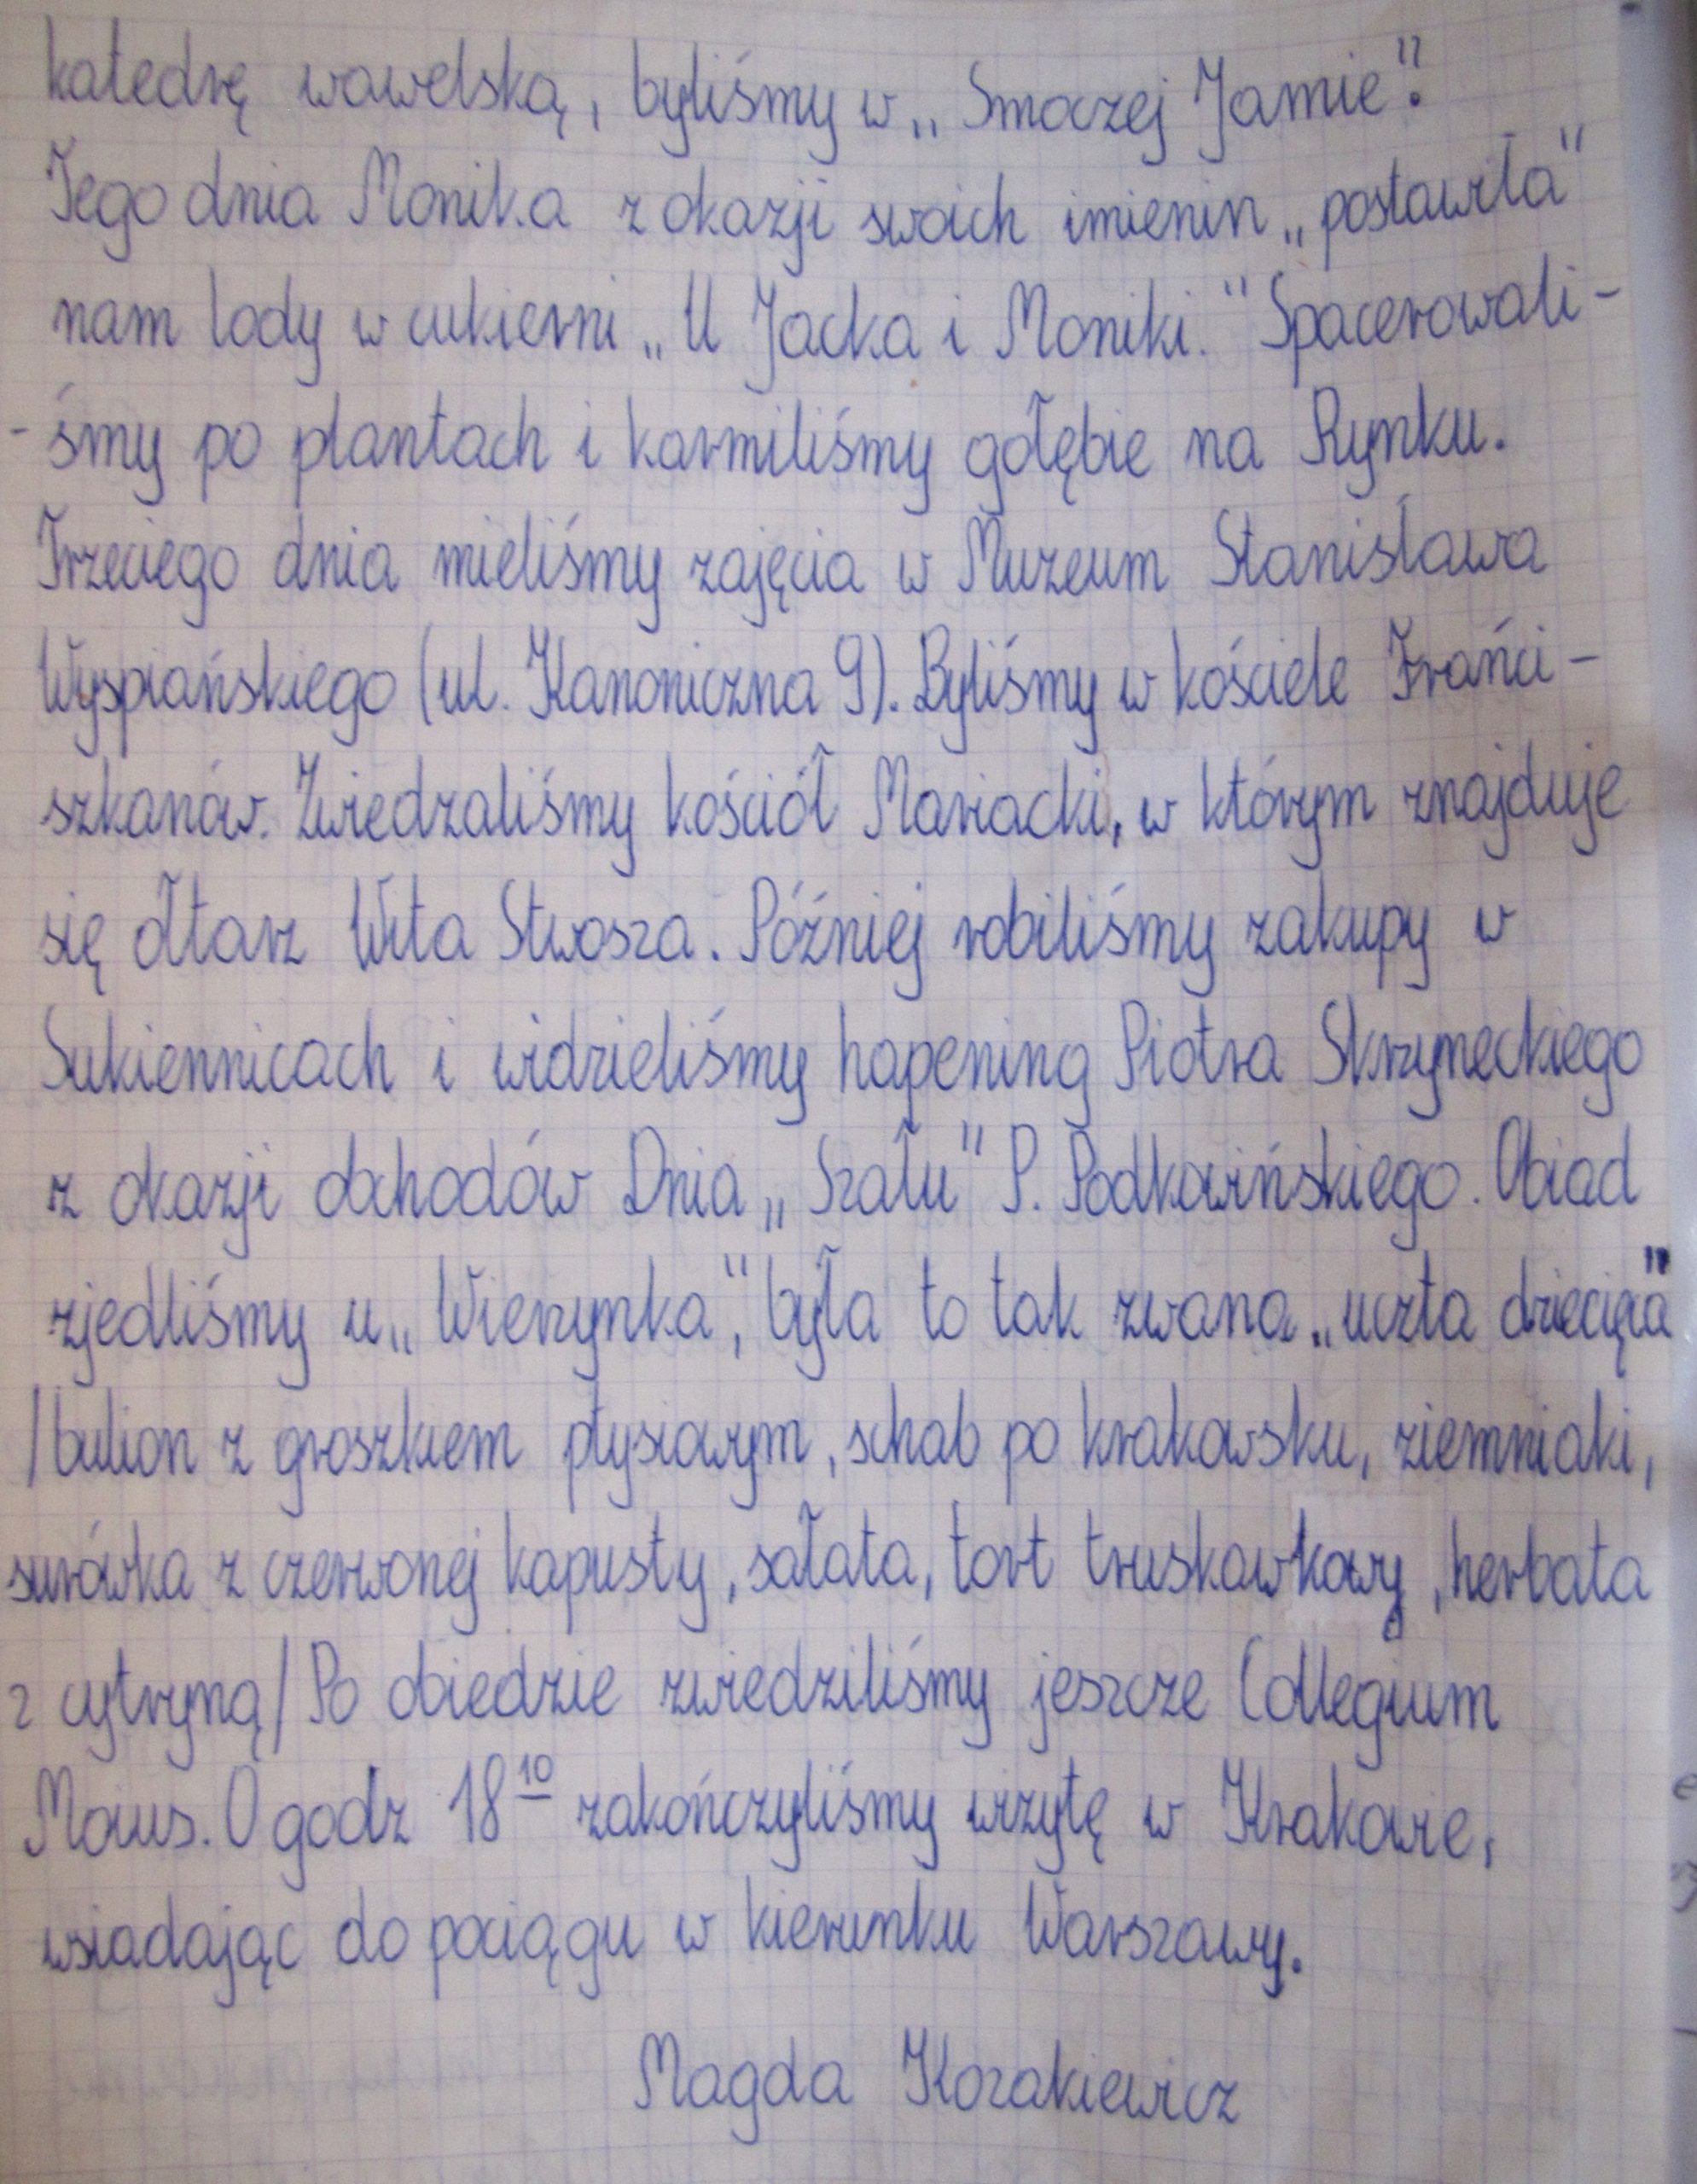 katedrę wawelską, byliśmy w „Smoczej Jamie".
Tego dnia Monika z okazji swoich imienin „postawiła"
nam lody w cukierni „U Jacka i Moniki." Spacerowali-
-śmy po plantach i karmiliśmy gołębie na Rynku.
Trzeciego dnia mieliśmy zajęcia w Muzeum Stanisława
Wyspiańskiego (ul. Kanoniczna 9). Byliśmy w kościele Frańci-
szkanów. Zwiedzaliśmy kościół Mariacki, w którym znajduje
się ołtarz Wita Stwosza. Później robiliśmy zakupy w
Sukiennicach i widzieliśmy hapening Piotra Skrzyneckiego
z okazji obchodów Dnia „Szału" P. Podkowińskiego. Obiad
zjedliśmy u „Wierzynka", była to tak zwana „uczta dziecięca"
/bulion z groszkiem ptysiowym, schab po krakowsku, ziemniaki,
surówka z czerwonej kapusty, sałata, tort truskawkowy, herbata
z cytryną/ Po obiedzie zwiedziliśmy jeszcze Collegium
Maius. O godz 18¹⁰ zakończyliśmy wizytę w Krakowie,
wsiadając do pociągu w kierunku Warszawy.
Magda Kozakiewicz